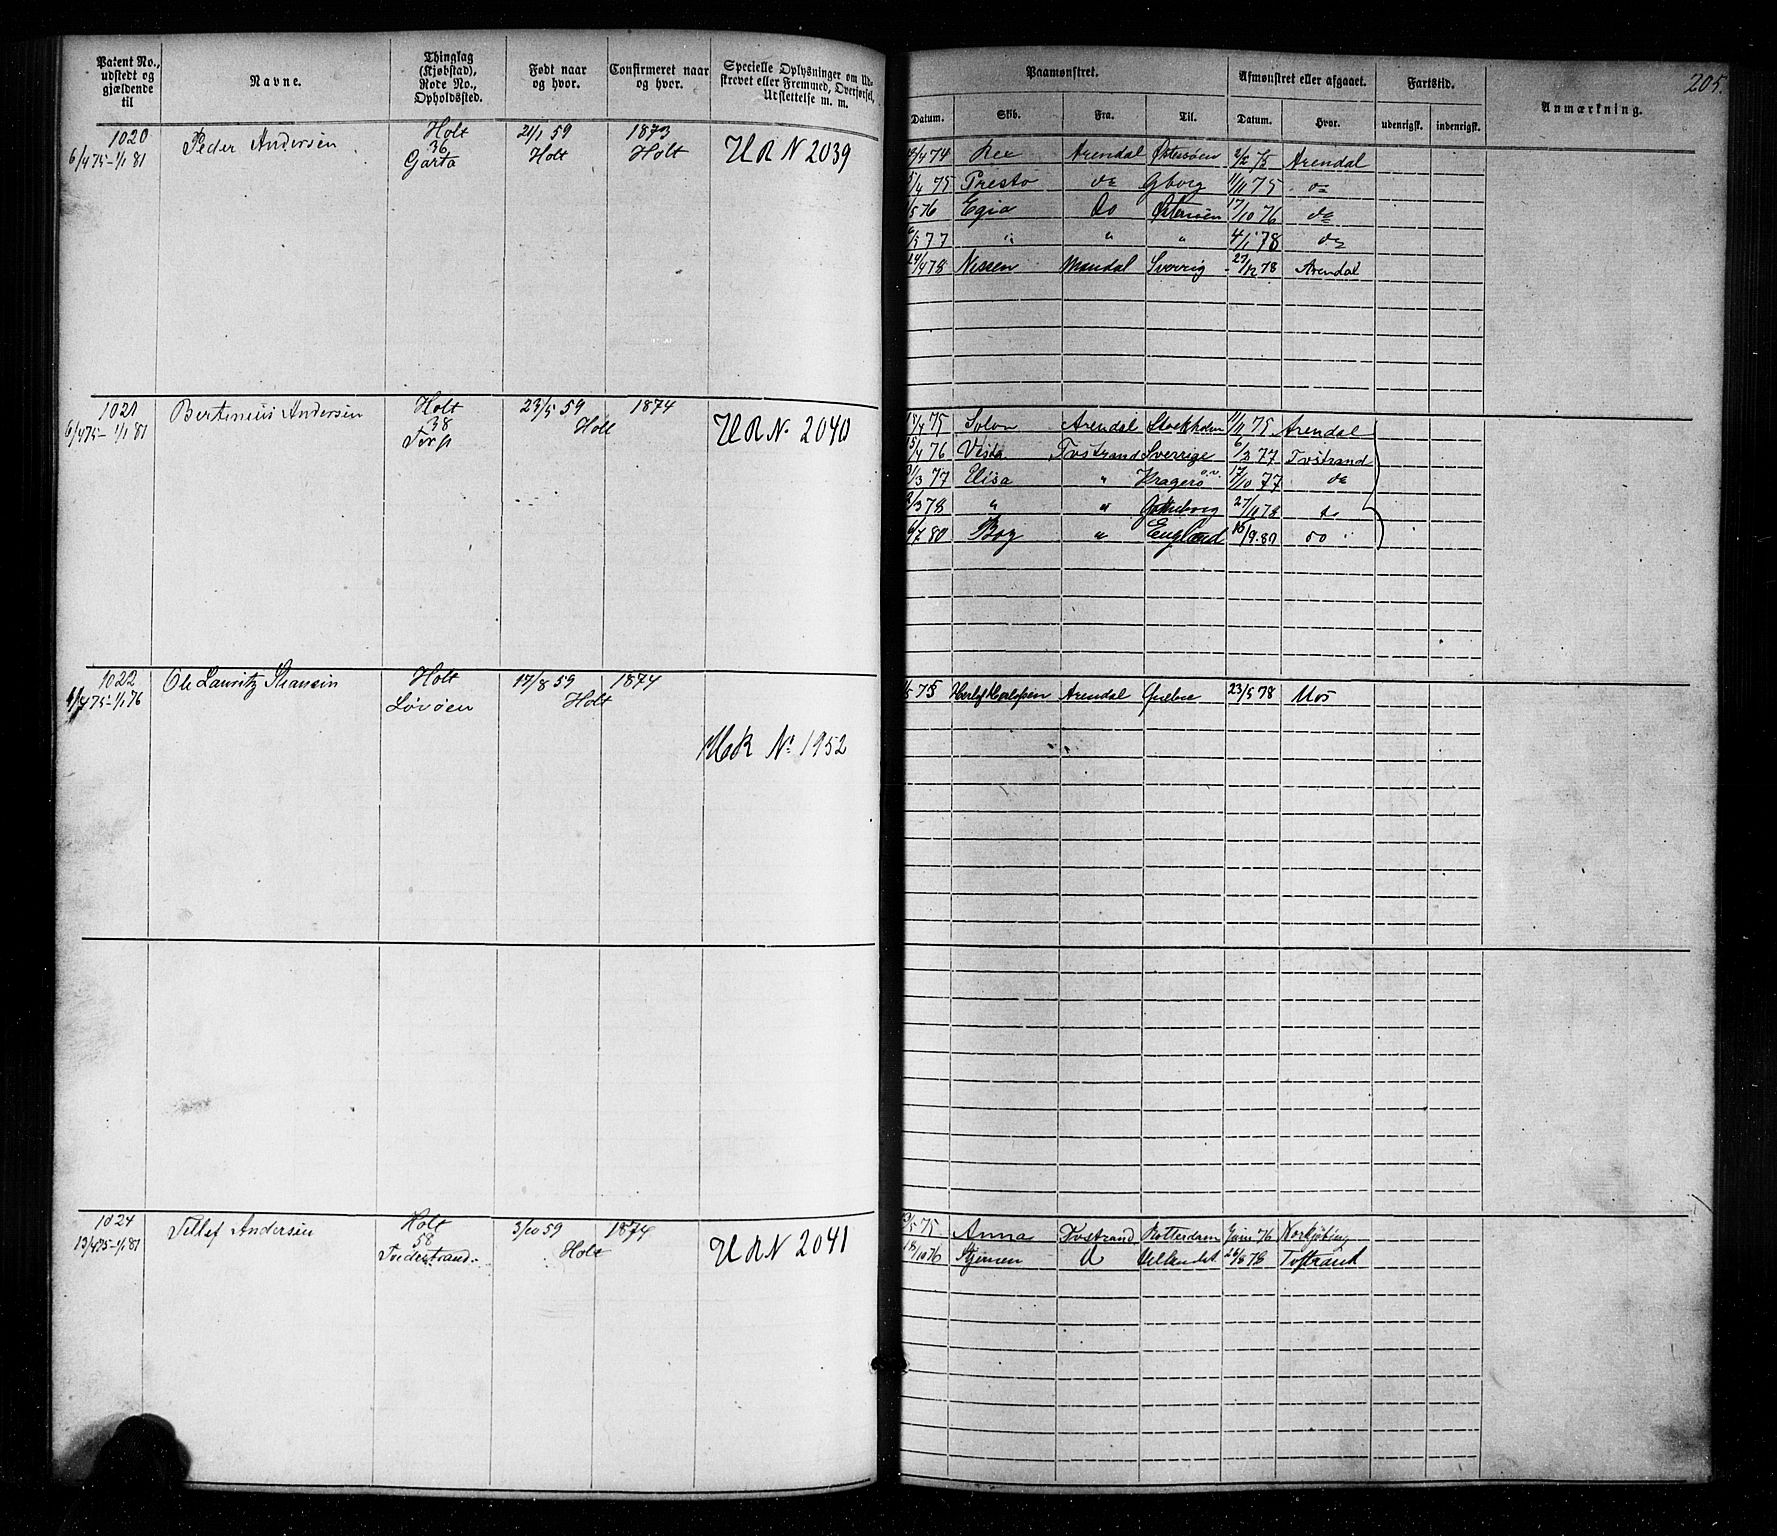 205.
Patent No., udstedt og gjældende til
Navne.
Thinglag (Kjøbstad), Rode No., Opholdssted.
Født naar og hvor.
Confirmeret naar og hvor.
Specielle Oplysninger om Udskrevet eller Fremmed, Overførsel, Udslettelse m. m.
Paamønstret.
Datum. Skib. Fra. Til.
Afmønstret eller afgaaet.
Datum. Hvor.
Fartstid.
udenrigsk. indenrigsk.
Anmærkning.
1020 Peder Andersen Holt 21/1 59 1873
6/4 75-1/1 81 36 Holt Holt URN 2039
Garta
4 74 Rex Arendal Østersøen 2/2 75 Arendal
/4 75 Presto do Gborg 11/11 75 do
/5 76 Egia do Østersøen 17/10 76 do
/3 77 " " " 4/1 78 do
24/4 78 Nissen Mandal Sverrig 27/12 78 Arendal
1021 Bertinius Andersen Holt 23/5 59 1874
6/4 75-1/1 81 38 Holt URN. 2040
Torp
/4 75 Solon Arendal Stockholm 11/11 75 Arendal
15/4 76 Vesta Tvstrand Sverrige 6/2 77 Tvstrand
/3 77 Elisa " Kragerø o.v. 17/10 77 do
/3 78 " " Gøtheborg 27/11 78 do
/7 80 Bog " England 16/9 80 do
1022 Ole Lauritz Hansen Holt 17/8 59 1874
6/4 75-1/1 76 Løvøen Holt
UR No 1952
/5 75 Herlof Herlofsen Arendal Quebec 23/5 78 Mos
1024 Tellef Andersen Holt 3/10 59 1874
13/4 75-1/1 81 58 Holt URN 2041
Tvedestrand.
/5 75 Anna Tvstrand Rotterdam Juni 76 Norkjöbing
18/10 76 Stjernen d Udlandet 26/8 78 Tvstrand